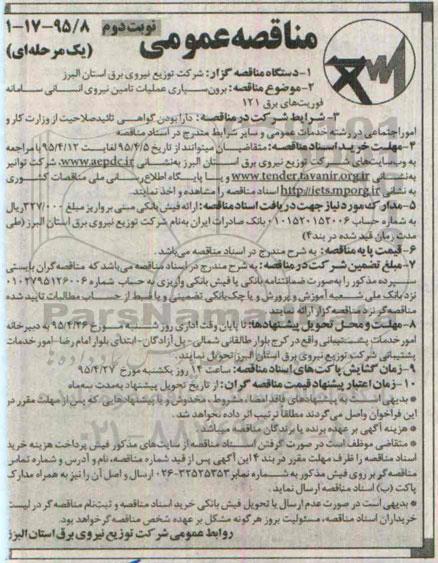 مناقصه عمومی
نوبت دوم
۱-۱۷-۹۵/۸
(یک مرحله‌ای)
۱-دستگاه مناقصه گزار: شرکت توزیع نیروی برق استان البرز
۲-موضوع مناقصه: برون‌سپاری عملیات تامین نیروی انسانی سامانه
فوریت‌های برق ۱۲۱
۳-شرایط شرکت در مناقصه: دارا بودن گواهی تائید صلاحیت از وزارت کار و
امور اجتماعی در رشته خدمات عمومی و سایر شرایط مندرج در اسناد مناقصه
۴-مهلت خرید اسناد مناقصه: متقاضیان میتوانند از تاریخ ۹۵/۴/۵ لغایت ۹۵/۴/۱۲ با مراجعه
به وب‌سایت‌های شرکت توزیع نیروی برق استان البرز به‌نشانی www.aepdc.ir، شرکت توانیر
به نشانی www.tender.tavanir.org.ir و یا پایگاه اطلاع‌رسانی ملی مناقصات کشوری
به نشانی http://iets.mporg.ir اسناد مناقصه را مشاهده و اخذ نمایند.
۵-مدارک مورد نیاز جهت دریافت اسناد: ارائه فیش بانکی مبنی بر واریز مبلغ ۲۲۷/۰۰۰ریال
به شماره حساب ۰۱۰۱۵۲۰۱۵۲۰۰۶ بانک صادرات ایران به‌نام شرکت توزیع نیروی برق استان البرز (طی
مدت زمان قید شده در بند۴)
۶-قیمت پایه مناقصه: به شرح مندرج در اسناد مناقصه می‌باشد.
۷-مبلغ تضمین شرکت در مناقصه: به شرح مندرج در اسناد مناقصه می‌باشد که مناقصه گران بایستی
سپرده مذکور را به‌صورت ضمانتنامه بانکی یا فیش بانکی واریزی به حساب شماره ۰۱۰۲۷۹۵۱۲۶۰۰۶
نزد بانک ملی شعبه آموزش و پرورش و یا چک بانکی تضمینی و یا ضبط از حساب مطالبات تایید شده
مناقصه‌گر نزد مناقصه گزار ارائه نمایند.
۸-مهلت و محل تحویل پیشنهادها: تا پایان وقت اداری روز شنبه مورخ ۹۵/۴/۲۶ به دبیرخانه
امور خدمات پشتیبانی واقع در کرج بلوار طالقانی شمالی-پل آزادگان-ابتدای بلوار امام رضا-امور خدمات
پشتیبانی شرکت توزیع نیروی برق استان البرز تحویل نمایند.
۹-زمان گشایش پاکت‌های اسناد مناقصه: ساعت ۱۴ روز یکشنبه مورخ ۹۵/۴/۲۷
۱۰-زمان اعتبار پیشنهاد قیمت مناقصه گران: از تاریخ تحویل پیشنهاد به‌مدت سه‌ماه
* بدیهی است به پیشنهادهای فاقد امضا، مشروط، مخدوش و یا پیشنهادهایی که پس از مهلت مقرر در
این فراخوان واصل می‌گردند مطلقا ترتیب اثر داده نخواهد شد.
* هزینه آگهی بر عهده برنده یا برندگان مناقصه میباشد.
* متقاضی موظف است در صورت گرفتن اسناد مناقصه از سایت‌های مذکور فیش پرداخت هزینه خرید
اسناد مناقصه را ظرف مهلت مقرر در بند ۴ این آگهی پس از قید شماره مناقصه، نام و آدرس و شماره تماس
مناقصه گر بر روی فیش مذکور به شماره نمابر ۳۲۵۲۵۳۵۳-۰۲۶ ارسال و اصل آن را نیز به همراه مدارک
پاکت (ب) اسناد مناقصه ارسال نماید.
* بدیهی است در صورت عدم ارسال یا تحویل فیش بانکی خرید اسناد مناقصه و ثبت‌نام مناقصه گر در لیست
خریداران اسناد مناقصه، مسئولیت بروز هر گونه مشکل بر عهده شخص مناقصه گر خواهد بود.
روابط عمومی شرکت توزیع نیروی برق استان البرز